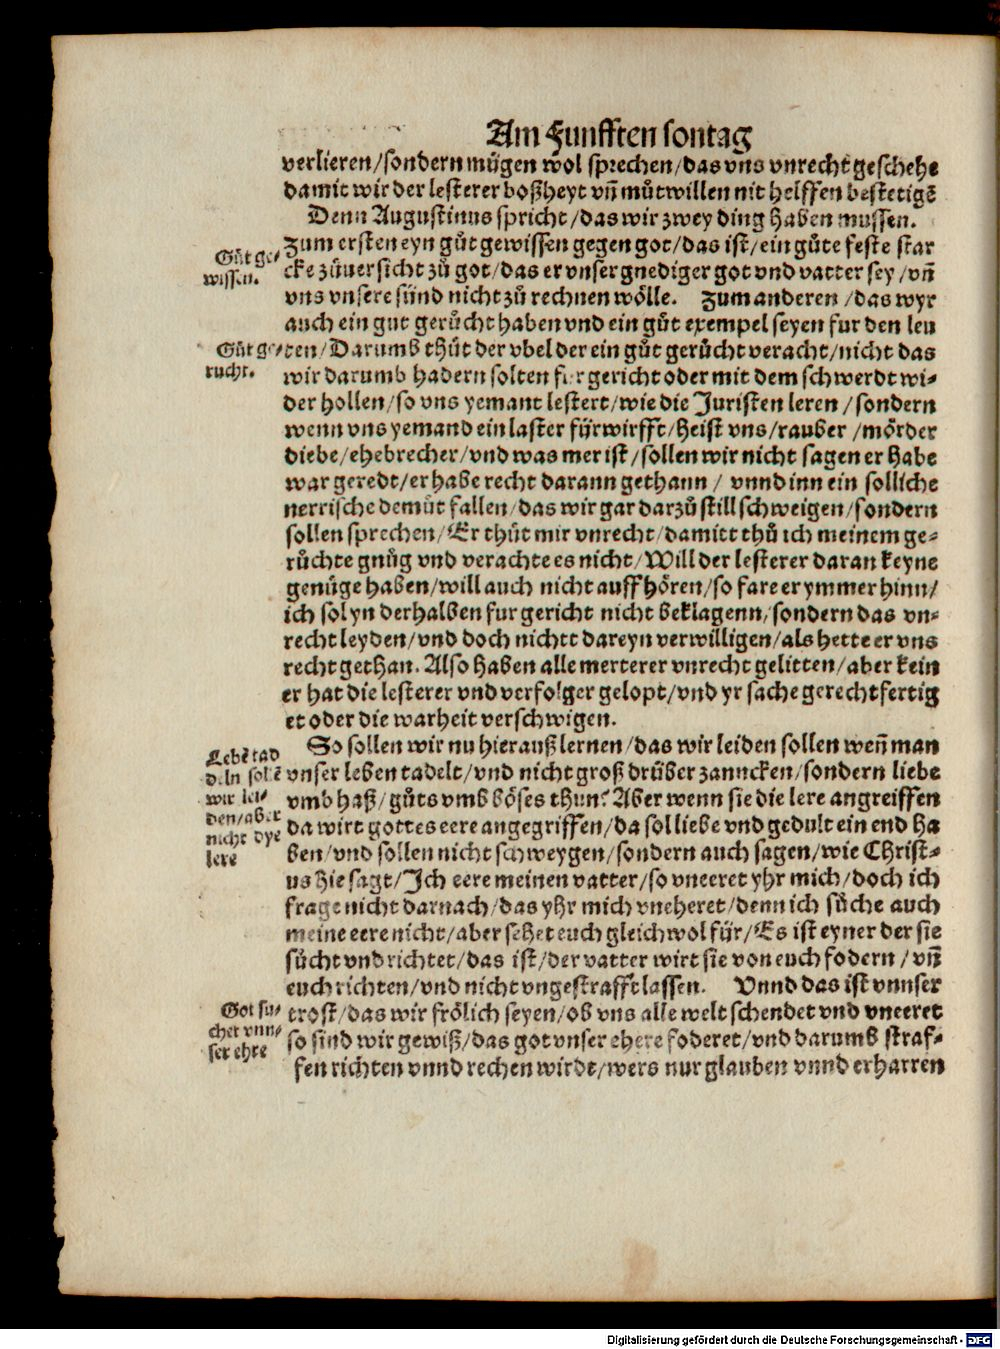 Am Funfften sontag
verlieren/sondern mügen wol sprechen/das vns vnrecht geschehe
damit wir der lesterer boßheyt vñ můtwillen nit helffen bestetigē
Denn Augustinus spricht/das wir zwey ding haben mussen.
Zum ersten eyn gůt gewissen gegen got/das ist/ein gůte feste star
cke zůuersicht zů got/das er vnser gnediger got vnd vatter sey/vñ
vns vnsere sünd nicht zů rechnen wölle. Zum anderen/das wyr
auch ein gut gerůcht haben vnd ein gůt exempel seyen fur den leu
ten/Darumb thůt der vbel der ein gůt gerůcht veracht/nicht das
wir darumb hadern solten fur gericht oder mit dem schwerdt wi-
der hollen/so vns yemant lestert/wie die Juristen leren/sondern
wenn vns yemand ein laster fürwirfft/heist vns/rauber/mörder
diebe/ehebrecher/vnd was mer ist/sollen wir nicht sagen er habe
war geredt/er habe recht darann gethann/vnnd inn ein solliche
nerrische demůt fallen/das wir gar darzů still schweigen/sondern
sollen sprechen/Er thůt mir vnrecht/damitt thů ich meinem ge-
růchte gnůg vnd verachte es nicht/Will der lesterer daran keyne
genüge haben/will auch nicht auffhören/so fare er ymmer hinn/
ich sol yn derhalben fur gericht nicht beklagenn/sondern das vn-
recht leyden/vnd doch nichtt dareyn verwilligen/als hette er vns
recht gethan. Also haben alle merterer vnrecht gelitten/aber kein
er hat die lesterer vnd verfolger gelopt/vnd yr sache gerechtfertig
et oder die warheit verschwigen.
So sollen wir nu hierauß lernen/das wir leiden sollen weñ man
vnser leben tadelt/vnd nicht groß drüber zanncken/sondern liebe
vmb haß/gůts vmb böses thun. Aber wenn sie die lere angreiffen
da wirt gottes eere angegriffen/da sol liebe vnd gedult ein end ha
ben/vnd sollen nicht schweygen/sondern auch sagen/wie Christ-
us hie sagt/Ich eere meinen vatter/so vneeret yhr mich/doch ich
frage nicht darnach/das yhr mich vneheret/denn ich sůche auch
meine eere nicht/aber sehet euch gleichwol für/Es ist eyner der sie
sůcht vnd richtet/das ist/der vatter wirt sie von euch fodern/vñ
euch richten/vnd nicht vngestrafft lassen. Vnnd das ist vnnser
trost/das wir frölich seyen/ob vns alle welt schendet vnd vneeret
so sind wir gewiß/das got vnser ehere foderet/vnd darumb straf-
fen richten vnnd rechen wirdt/wers nur glauben vnnd erharren
Gůt ge-
wissen.
Gůt ge-
rucht.
Lebē tad
deln solē
wir lei-
den/aber
nicht dye
lere
Got su-
chet vnn-
ser ehre
Digitalisierung gefördert durch die Deutsche Forschungsgemeinschaft - DFG